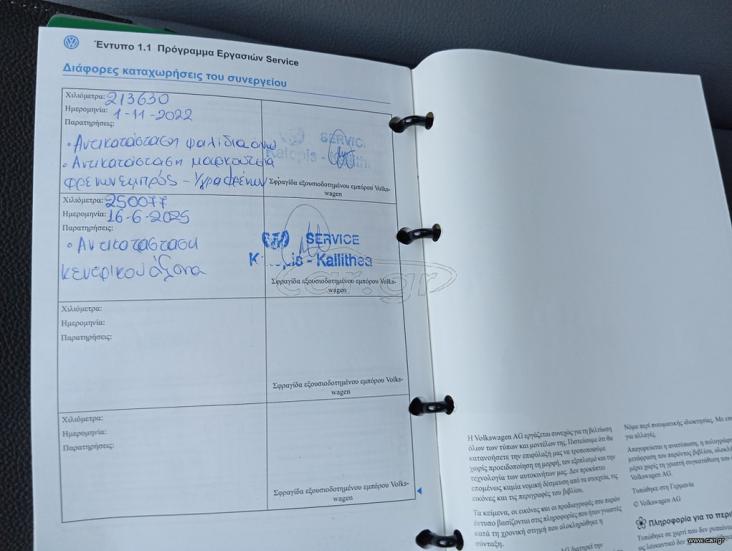 Έντυπο 1.1 Πρόγραμμα Εργασιών Service
Διάφορες καταχωρήσεις του συνεργείου
Χιλιόμετρα: 213630
Ημερομηνία: 1-11-2022
Παρατηρήσεις:
• Αντικατάσταση ψαλίδια
• Αντικατάσταση μαρκούτσια
φρένων εμπρός - Υγρά φρένων
SERVIC
- llith
Σφραγίδα εξουσιοδοτημένου εμπόρου Volks-
wagen
Χιλιόμετρα: 250077
Ημερομηνία: 16-6-2025
Παρατηρήσεις:
• Αντικατάσταση
κεντρικού άξονα
SERVICE
K pis - Kallithea
Σφραγίδα εξουσιοδοτημένου εμπόρου Volks-
wagen
car.gr
Χιλιόμετρα:
Ημερομηνία:
Παρατηρήσεις:
Σφραγίδα εξουσιοδοτημένου εμπόρου Volks-
wagen
Χιλιόμετρα:
Ημερομηνία:
Παρατηρήσεις:
Σφραγίδα εξουσιοδοτημένου εμπόρου Volks-
wagen
Η Volkswagen AG εργάζεται συνεχώς για τη βελτίωση
όλων των τύπων και μοντέλων της. Πιστεύουμε ότι θα
κατανοήσετε την επιφύλαξή μας να τροποποιούμε
χωρίς προειδοποίηση τη μορφή, τον εξοπλισμό και την
τεχνολογία των αυτοκινήτων μας. Δεν προκύπτει
επομένως καμία νομική δέσμευση από τα στοιχεία, τις
εικόνες και τις περιγραφές του βιβλίου.
Τα κείμενα, οι εικόνες και οι προδιαγραφές στο παρόν
έντυπο βασίζονται στις πληροφορίες που ήταν γνωστές
κατά τη χρονική στιγμή που ολοκληρώθηκε η
σύνταξη.
Νόμο περί πνευματικής ιδιοκτησίας. Με επι
για αλλαγές.
Απαγορεύεται η ανατύπωση, η
Volkswagen AG.
Τυπώθηκε στη Γερμανία
© Volkswagen AG
Πληροφορία για το περι
Τυπώθηκε σε χαρτί που δεν
www.car.gr